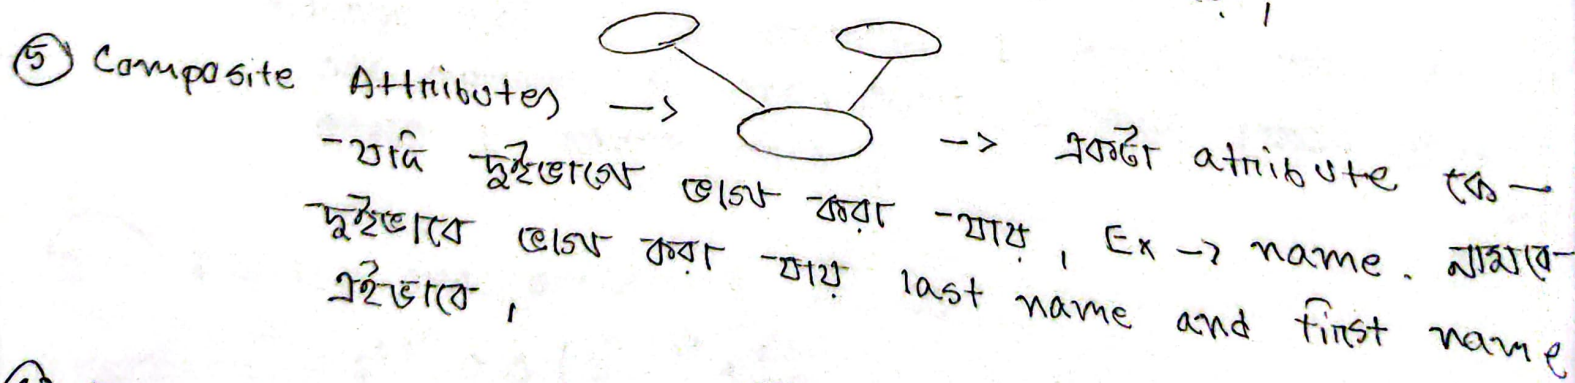 ⑤ Composite Attributes → → একটা atribute কে
যদি দুইভাগে ভাগ করা যায়, Ex → name. নামকে
দুইভাবে ভাগ করা যায় last name and first name
এইভাবে,